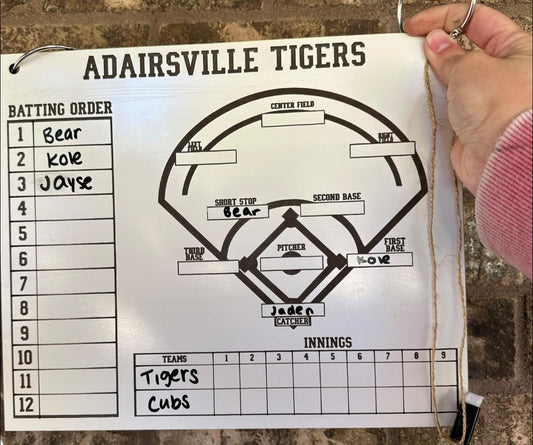 ADAIRSVILLE TIGERS
BATTING ORDER
1 Bear
2 Kole
3 Jayse
4
5
6
7
8
9
10
11
12
CENTER FIELD
LEFT FIELD
RIGHT FIELD
SHORT STOP
Bear
SECOND BASE
THIRD BASE
PITCHER
FIRST BASE
Kole
Jaden
CATCHER
INNINGS
TEAMS 1 2 3 4 5 6 7 8 9
Tigers
Cubs